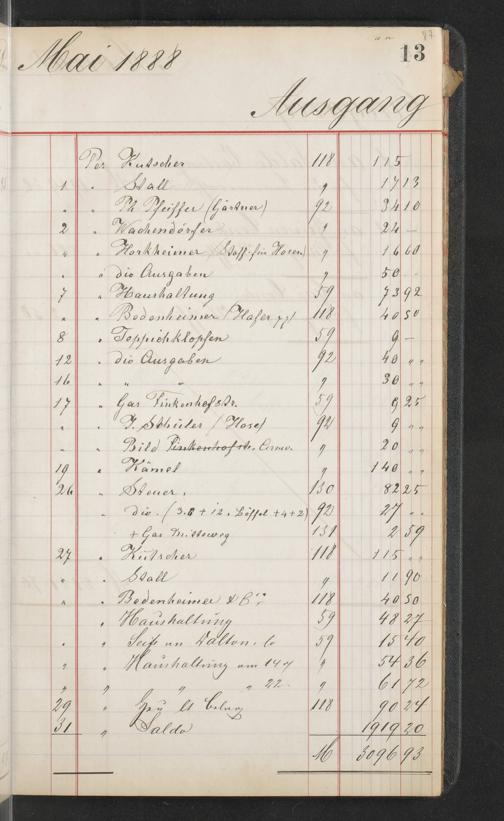 87
13
Mai 1888
Ausgang
Per Kutscher 118 115
1 " Stall " 17 13
" " Th. Pfeiffer (Gärtner) 92 34 10
2 " Wachendörfer " 24 —
" " Horkheimer (Stoff für Hosen) " 16 60
" " div Ausgaben " 50
7 " Haushaltung 59 73 92
" " Bodenheimer (Hafer pp) 118 40 50
8 " Teppichklopfen 59 9 —
12 " div Ausgaben 92 40 "
16 " " " " 30 "
17 " Gas Finkenhofstr. 59 9 25
" " J. Schuler (Hose) 92 9 "
" " Bild Finkenhofstr. " 20 "
19 " Hämel " 140 "
26 " Steuer. 130 82 25
" div. (3.8 + 12. Löffel + 4 + 2) 92 27 "
+ Gas 131 2 59
27 " Kutscher 118 115 "
" " Stall " 11 90
" " Bodenheimer & Co 118 40 50
" Haushaltung 59 48 27
" " Seife an Dalton. Co 59 15 40
" " Haushaltung am 14 " 54 36
" " " " 22. " 61 72
29 " Heu 118 90 24
31 " Saldo 1919 20
M 3096 93